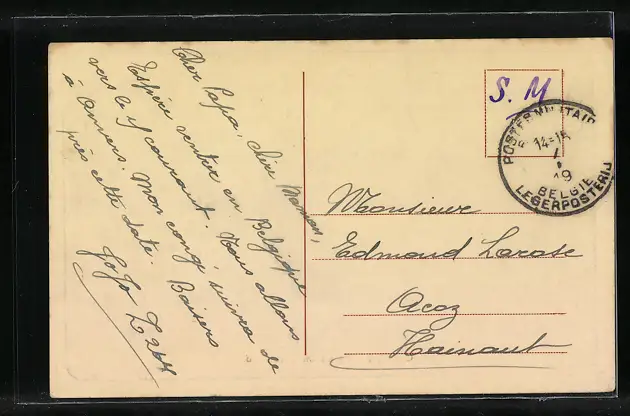 Cher Papa, chère Maman,
Espère rentrer en Belgique
vers le 4 courant. Nous allons
à Anvers. Mon congé suivra de
près cette date. Baisers
JoJo Z244
S. M
POSTES MILITAIR
14-15
19
BELGIE
LEGERPOSTERIJ
Monsieur
Edmond Larose
Acoz
Hainaut